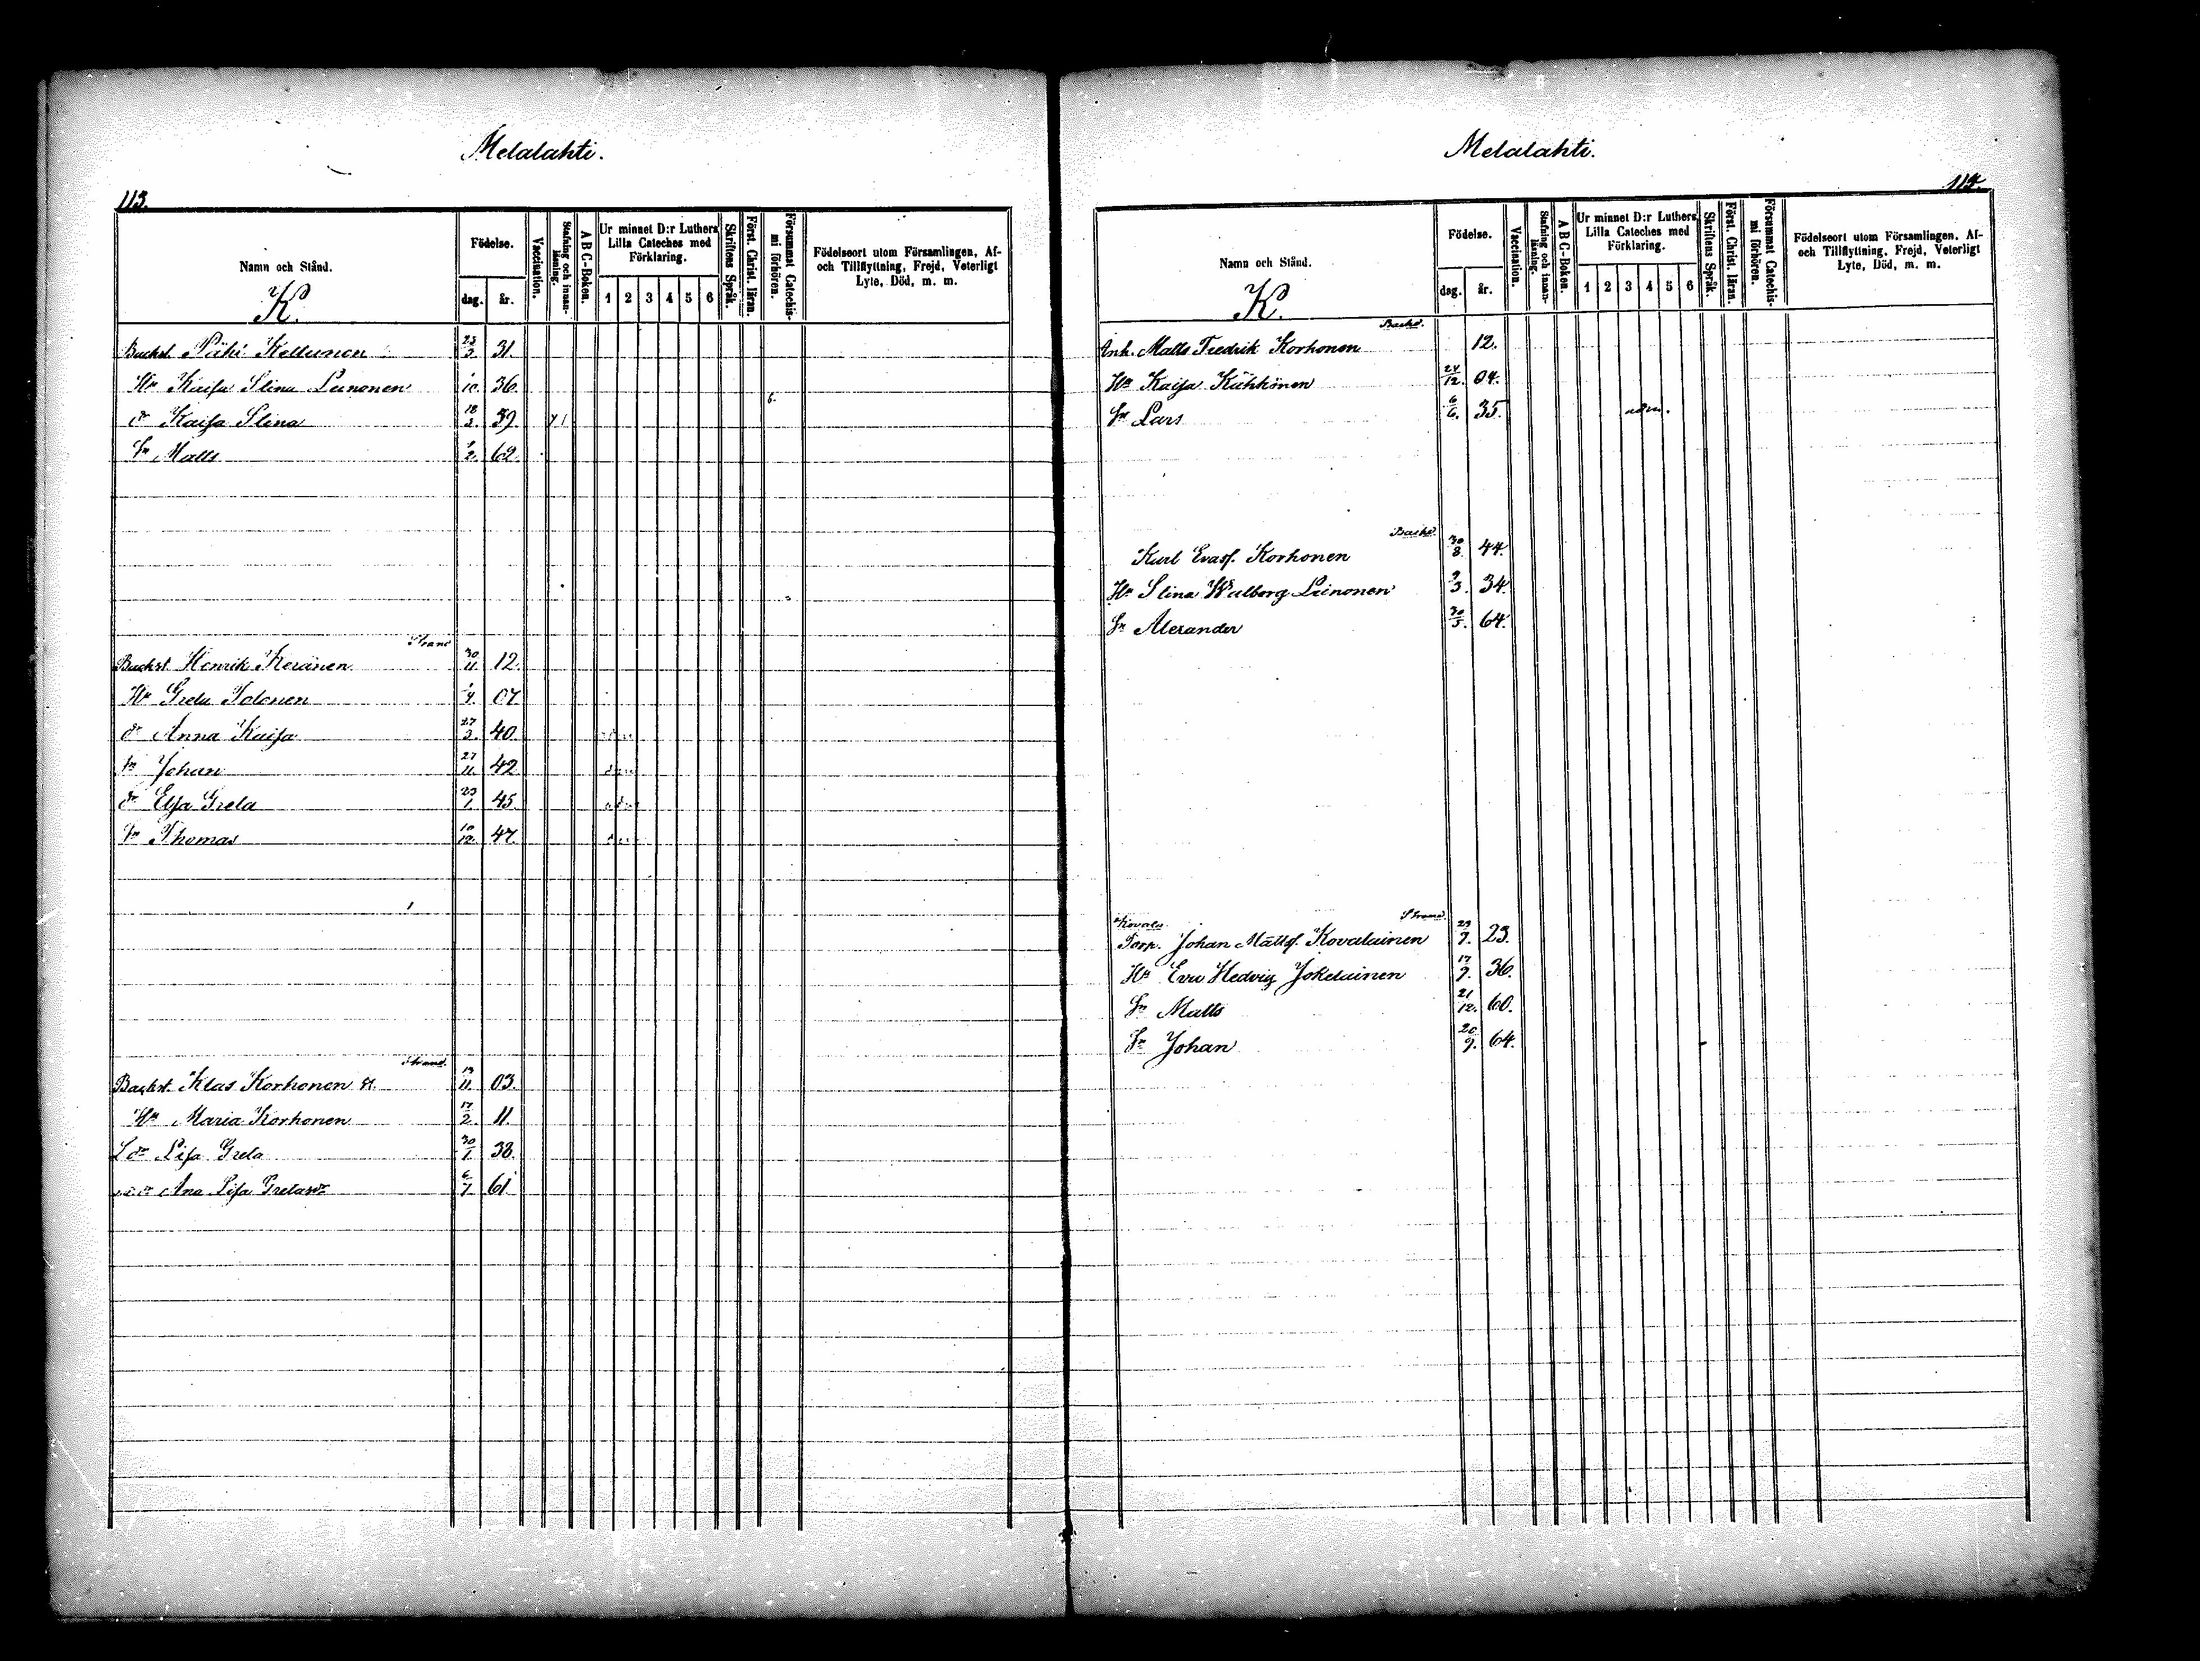 Melalahti.
113.
Namn och Stånd.
K.
Födelse.
dag. år.
Vaccination.
Stafning och innanläsning.
A B C-Boken.
Ur minnet D:r Luthers Lilla Cateches med Förklaring.
1 2 3 4 5 6
Skriftens Språk.
Först. Christ. läran.
Försummat Catechismi förhören.
Födelseort utom Församlingen, Af- och Tillflyttning, Frejd, Veterligt Lyte, Död, m. m.
Backst. Påhl Kellunen 23/3. 31.
Hu Kaisa Stina Leinonen 1/10. 36.
6.
dr Kaisa Stina 18/3. 59.
Sn Matts 1/2. 62.
Strand
Backst. Henrik Keränen 30/11. 12.
Hu Greta Tolonen 07.
dr Anna Kaisa 27/3. 40.
Sn Johan 27/11. 42.
dr Elsa Greta 23/1. 45.
Sn Thomas 10/12. 47.
Strand.
Backst. Klas Korhonen 13/11. 03.
Hu Maria Korhonen 17/2. 11.
dr Lisa Greta 30/1. 38.
Ana Lisa Gretasdr 6/7. 61.
Melalahti.
114.
Namn och Stånd.
K.
Födelse.
dag. år.
Vaccination.
Stafning och innanläsning.
A B C-Boken.
Ur minnet D:r Luthers Lilla Cateches med Förklaring.
1 2 3 4 5 6
Skriftens Språk.
Först. Christ. läran.
Försummat Catechismi förhören.
Födelseort utom Församlingen, Af- och Tillflyttning, Frejd, Veterligt Lyte, Död, m. m.
Enk. Matts Fredrik Korhonen 12.
Hu Kaisa Kähkönen 24/12. 04.
Sn Lars 6/6. 35. adm.
Karl Evasf. Korhonen 30/8. 44.
Hu Stina Walborg Leinonen 9/3. 34.
Sn Alexander 30/5. 64.
Strand.
Torp. Johan Mattsf. Kovalainen 29/7. 23.
Hu Eva Hedvig Jokelainen 17/7. 36.
Sn Matts 21/12. 60.
Sn Johan 20/9. 64.